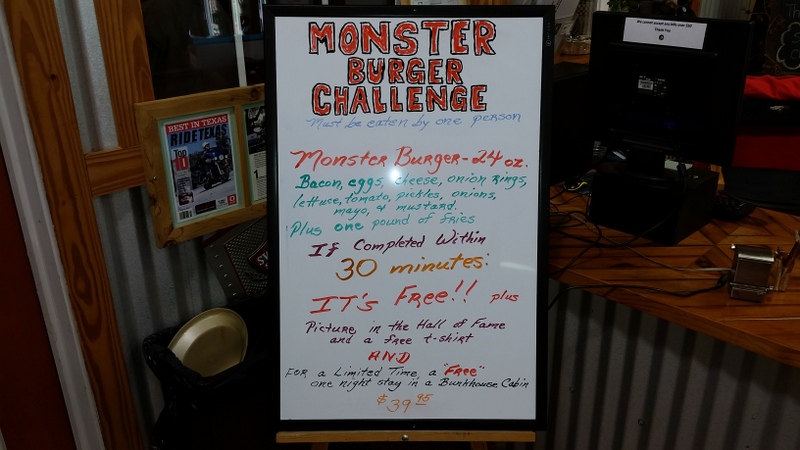 MONSTER
BURGER
CHALLENGE
Must be eaten by one person
Monster Burger - 24 oz.
Bacon, eggs, cheese, onion rings,
lettuce, tomato, pickles, onions,
mayo, & mustard.
Plus one pound of fries
If Completed Within
30 minutes:
IT's Free!! plus
Picture in the Hall of Fame
and a free t-shirt
AND
FOR a Limited Time, a "Free"
one night stay in a Bunkhouse Cabin
$39.95
BEST IN TEXAS
RIDETEXAS
Top
Thank You